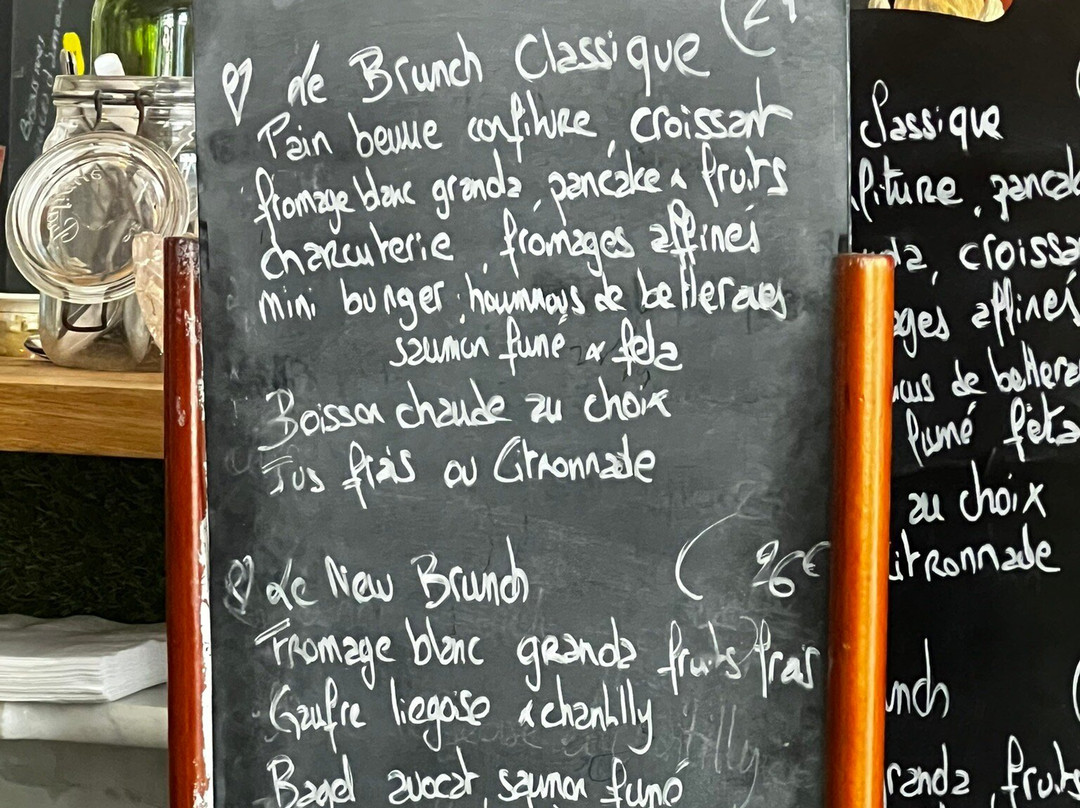 Le Brunch Classique
Pain beurre confiture, croissant
fromage blanc granola, pancake & fruits
charcuterie, fromages affinés
mini burger, houmous de betteraves
saumon fumé & feta
Boisson chaude au choix
Jus frais ou Citronnade
Le New Brunch (26€
Fromage blanc granola fruits frais
Gaufre liegoise & chantilly
Bagel avocat, saumon fumé
Classique
fiture, pancak
la, croissa
ages affinés
ous de bettera
fumé feta
au choix
itronnade
unch
ranola, fruits